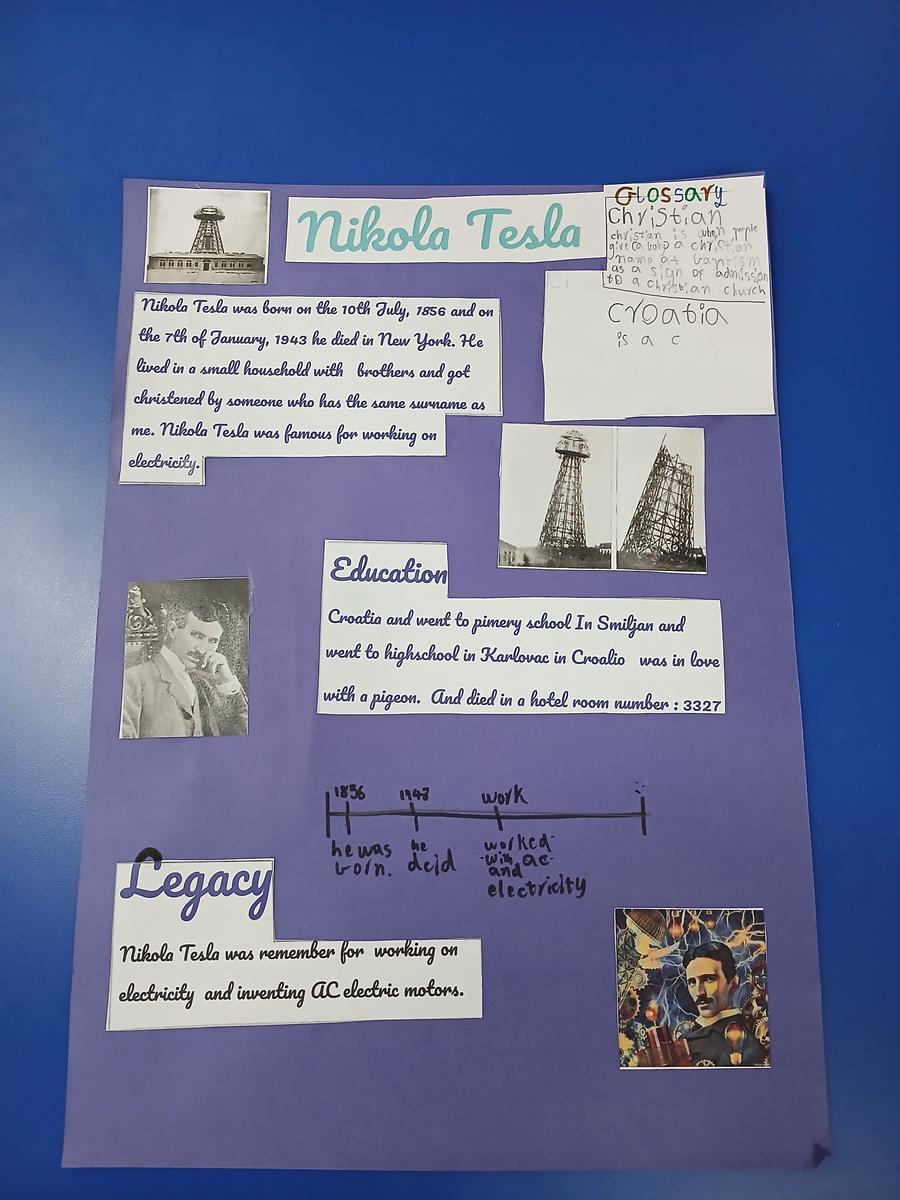 Nikola Tesla
Glossary
Christian
christian is when people
give a baby a christian
name at baptism
as a sign of admission
to a christian church
Croatia
is a c
Nikola Tesla was born on the 10th July, 1856 and on
the 7th of January, 1943 he died in New York. He
lived in a small household with brothers and got
christened by someone who has the same surname as
me. Nikola Tesla was famous for working on
electricity.
Education
Croatia and went to pimery school In Smiljan and
went to highschool in Karlovac in Croalio was in love
with a pigeon. And died in a hotel room number : 3327
1856
1943
work
he was
born.
he
deid
worked
with ac
and
electricity
Legacy
Nikola Tesla was remember for working on
electricity and inventing AC electric motors.